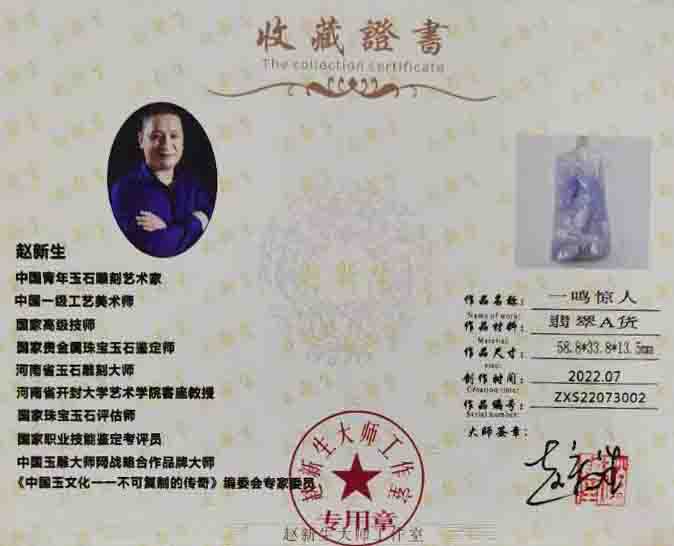 收藏證書
The collection certificate
赵新生
中国青年玉石雕刻艺术家
中国一级工艺美术师
国家高级技师
国家贵金属珠宝玉石鉴定师
河南省玉石雕刻大师
河南省开封大学艺术学院客座教授
国家珠宝玉石评估师
国家职业技能鉴定考评员
中国玉雕大师网战略合作品牌大师
《中国玉文化一一不可复制的传奇》编委会专家委员
作品名称： 一鸣惊人
Name of work:
作品材料： 翡翠A货
Material:
作品尺寸： 58.8*33.8*13.5mm
size:
创作时间： 2022.07
Creation time:
作品编号： ZXS22073002
Serial number:
大师签章：
赵新生
赵新生大师工作室
专用章
赵新生大师工作室